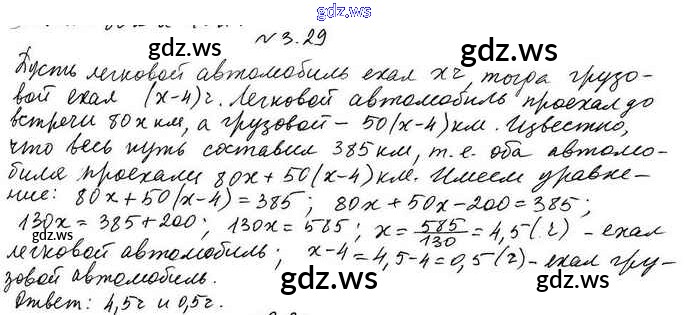 gdz.ws
№3.29
gdz.ws
gdz.ws
Пусть легковой автомобиль ехал x ч, тогда грузо-
вой ехал (x-4) ч. Легковой автомобиль проехал до
встречи 80x км, а грузовой - 50(x-4) км. Известно,
что весь путь составил 385 км, т.е. оба автомо-
gdz.ws
gdz.ws
биля проехали 80x + 50(x-4) км. Имеем уравне-
ние: 80x + 50(x-4) = 385; 80x + 50x - 200 = 385;
130x = 385 + 200; 130x = 585; x = 585/130 = 4,5 (ч) - ехал
gdz.ws
gdz.ws
легковой автомобиль; x-4 = 4,5-4 = 0,5 (ч) - ехал гру-
зовой автомобиль.
Ответ: 4,5 ч и 0,5 ч.
gdz.ws
gdz.ws